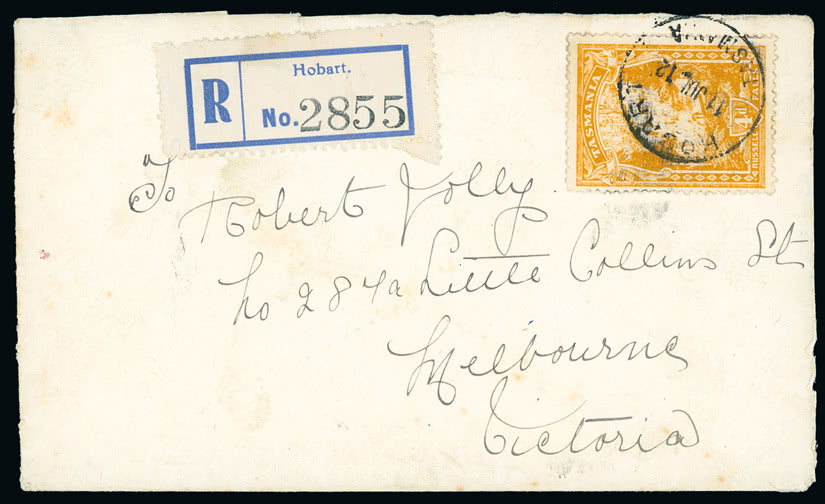 R
Hobart.
No. 2855
TASMANIA
4d
RUSSELL FALLS
HOBART
11 JUL 12
TASMANIA
To
Robert Jolly.
No 287a Little Collins St
Melbourne
Victoria